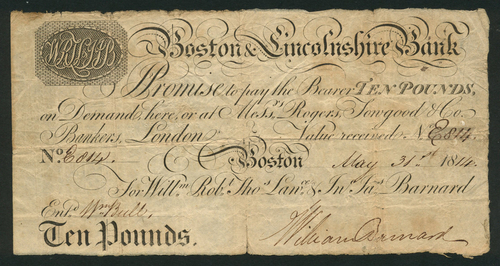 WRTLIJB
Boston & Lincolnshire Bank
Promise to pay the Bearer TEN POUNDS,
on Demand, here, or at Mess.rs Rogers, Towgood & Co.
Bankers, London Value received, No E814
No. E814. Boston May 31st 1814.
For Will.m Rob.t Tho.s Lan.ce & Jn.o Ja.s Barnard
Ent.d Wm Bull
Ten Pounds. William Barnard